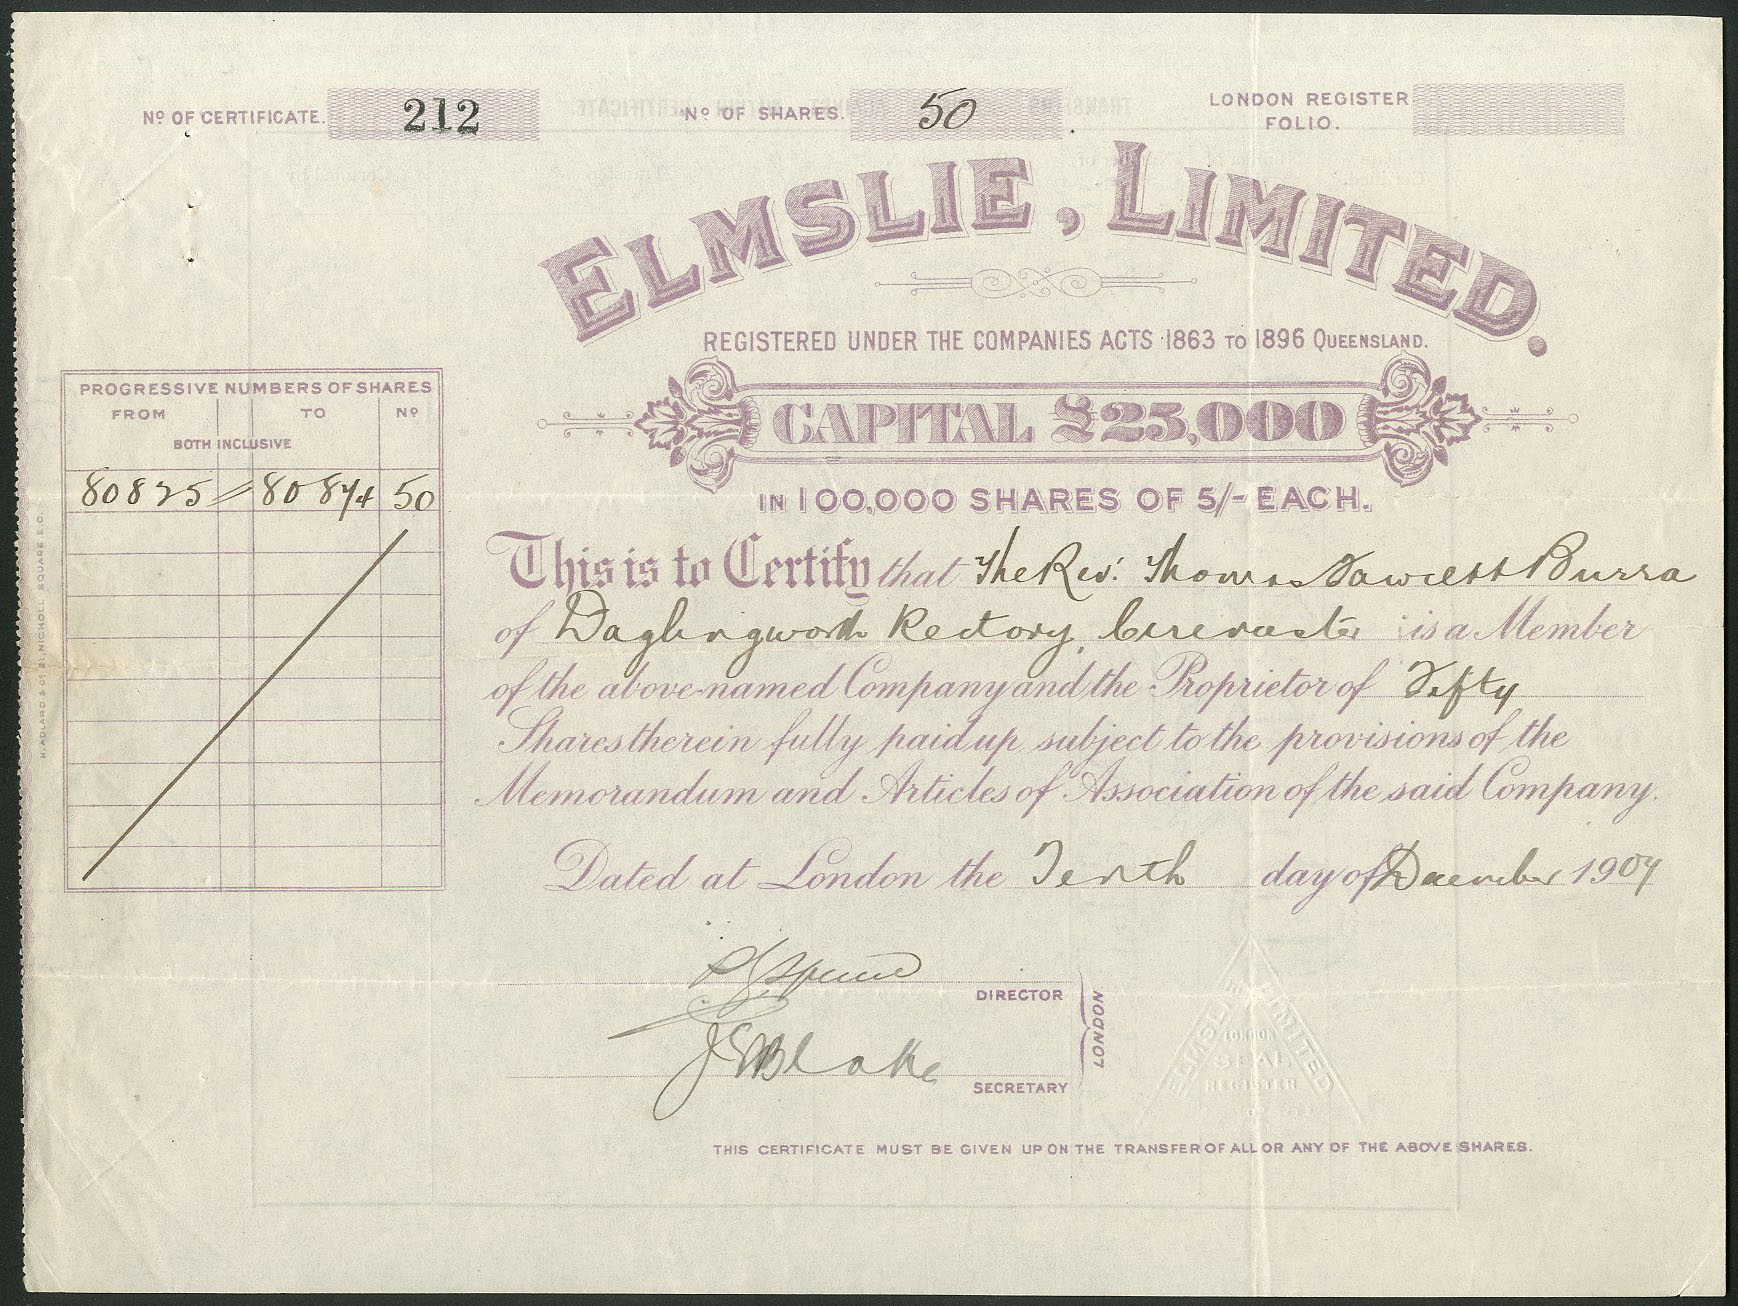 Nº OF CERTIFICATE. 212
Nº OF SHARES. 50
LONDON REGISTER
FOLIO.
ELMSLIE, LIMITED.
REGISTERED UNDER THE COMPANIES ACTS 1863 TO 1896 QUEENSLAND.
CAPITAL £25,000
IN 100,000 SHARES OF 5/- EACH.
PROGRESSIVE NUMBERS OF SHARES
FROM TO Nº
BOTH INCLUSIVE
80825 80874 50
This is to Certify that The Rev. Thomas Fawcett Burra
of Daglingworth Rectory, Cirencester is a Member
of the above-named Company and the Proprietor of Fifty
Shares therein fully paid up subject to the provisions of the
Memorandum and Articles of Association of the said Company.
Dated at London the Tenth day of December 1907
DIRECTOR
J Blake
SECRETARY
LONDON
ELMSLIE LIMITED
LONDON
SEAL
REGISTER
THIS CERTIFICATE MUST BE GIVEN UP ON THE TRANSFER OF ALL OR ANY OF THE ABOVE SHARES.
H. ADLARD & Cº 21, NICHOLL SQUARE. E.C.